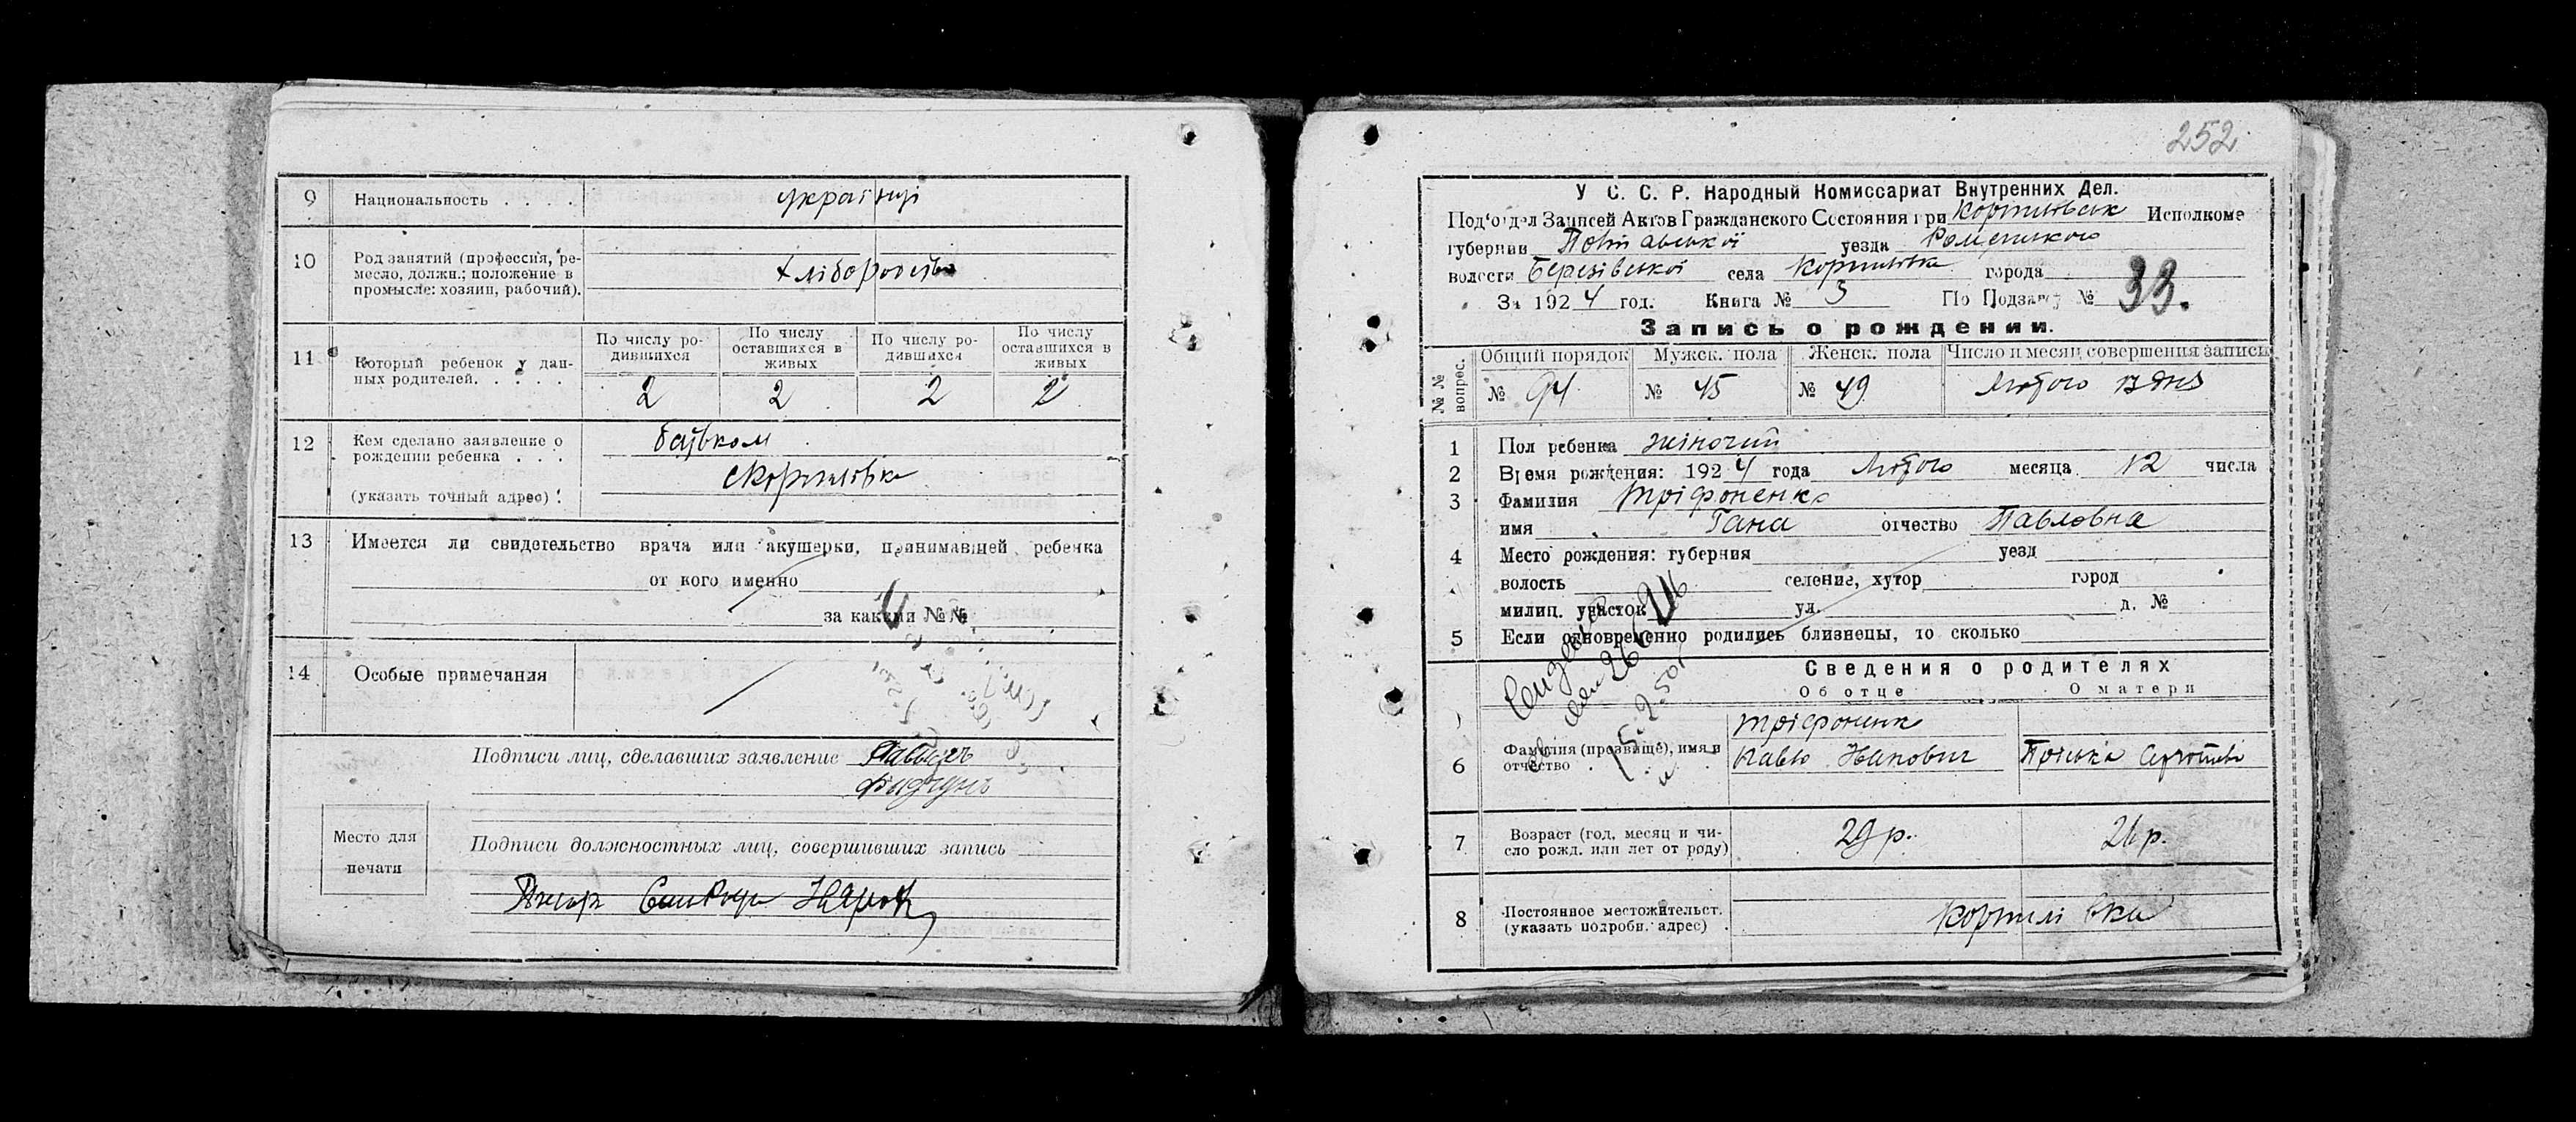 9 Национальность . . . . українці
10 Род занятий (профессия, ре-
месло, должн.; положение в
промысле: хозяин, рабочий).
хліборобство
11 Который ребенок у дан-
ных родителей. . . . .
По числу ро-
дившихся
По числу
оставшихся в
живых
По числу ро-
дившихся
По числу
оставшихся в
живых
2 2 2 2
12 Кем сделано заявление о
рождении ребенка . . .
(указать точный адрес)
батьком
с Коржилівка
13 Имеется ли свидетельство врача или акушерки, принимавшей ребенка
от кого именно
за какими №№
14 Особые примечания
Подписи лиц, сделавших заявление
Место для
печати
Подписи должностных лиц, совершивших запись
252
У С. С. Р. Народный Комиссариат Внутренних Дел.
Под'отдел Записей Актов Гражданского Состояния при Исполкоме
губернии Полтавської уезда Роменського
волости Березівської села города
За 1924 год. Книга № 3 По Подзагс № 33.
Запись о рождении.
№№ вопрос.
Общий порядок Мужск. пола Женск. пола Число и месяц совершения записи
№ 94 № 45 № 49 Лютого 13 дня
1 Пол ребенка жіночий
2 Время рождения: 1924 года Лютого месяца 12 числа
3 Фамилия Тріфоненко
имя Гана отчество Павловна
4 Место рождения: губерния уезд
волость селение, хутор город
милиц. участок ул. д. №
5 Если одновременно родились близнецы, то сколько
Сведения о родителях
Об отце О матери
6 Фамилия (прозвище), имя и
отчество
Тріфоненк
Павло Іванович
7 Возраст (год, месяц и чи-
сло рожд. или лет от роду)
29 р. 26 р.
8 Постоянное местожительст.
(указать подробн. адрес)